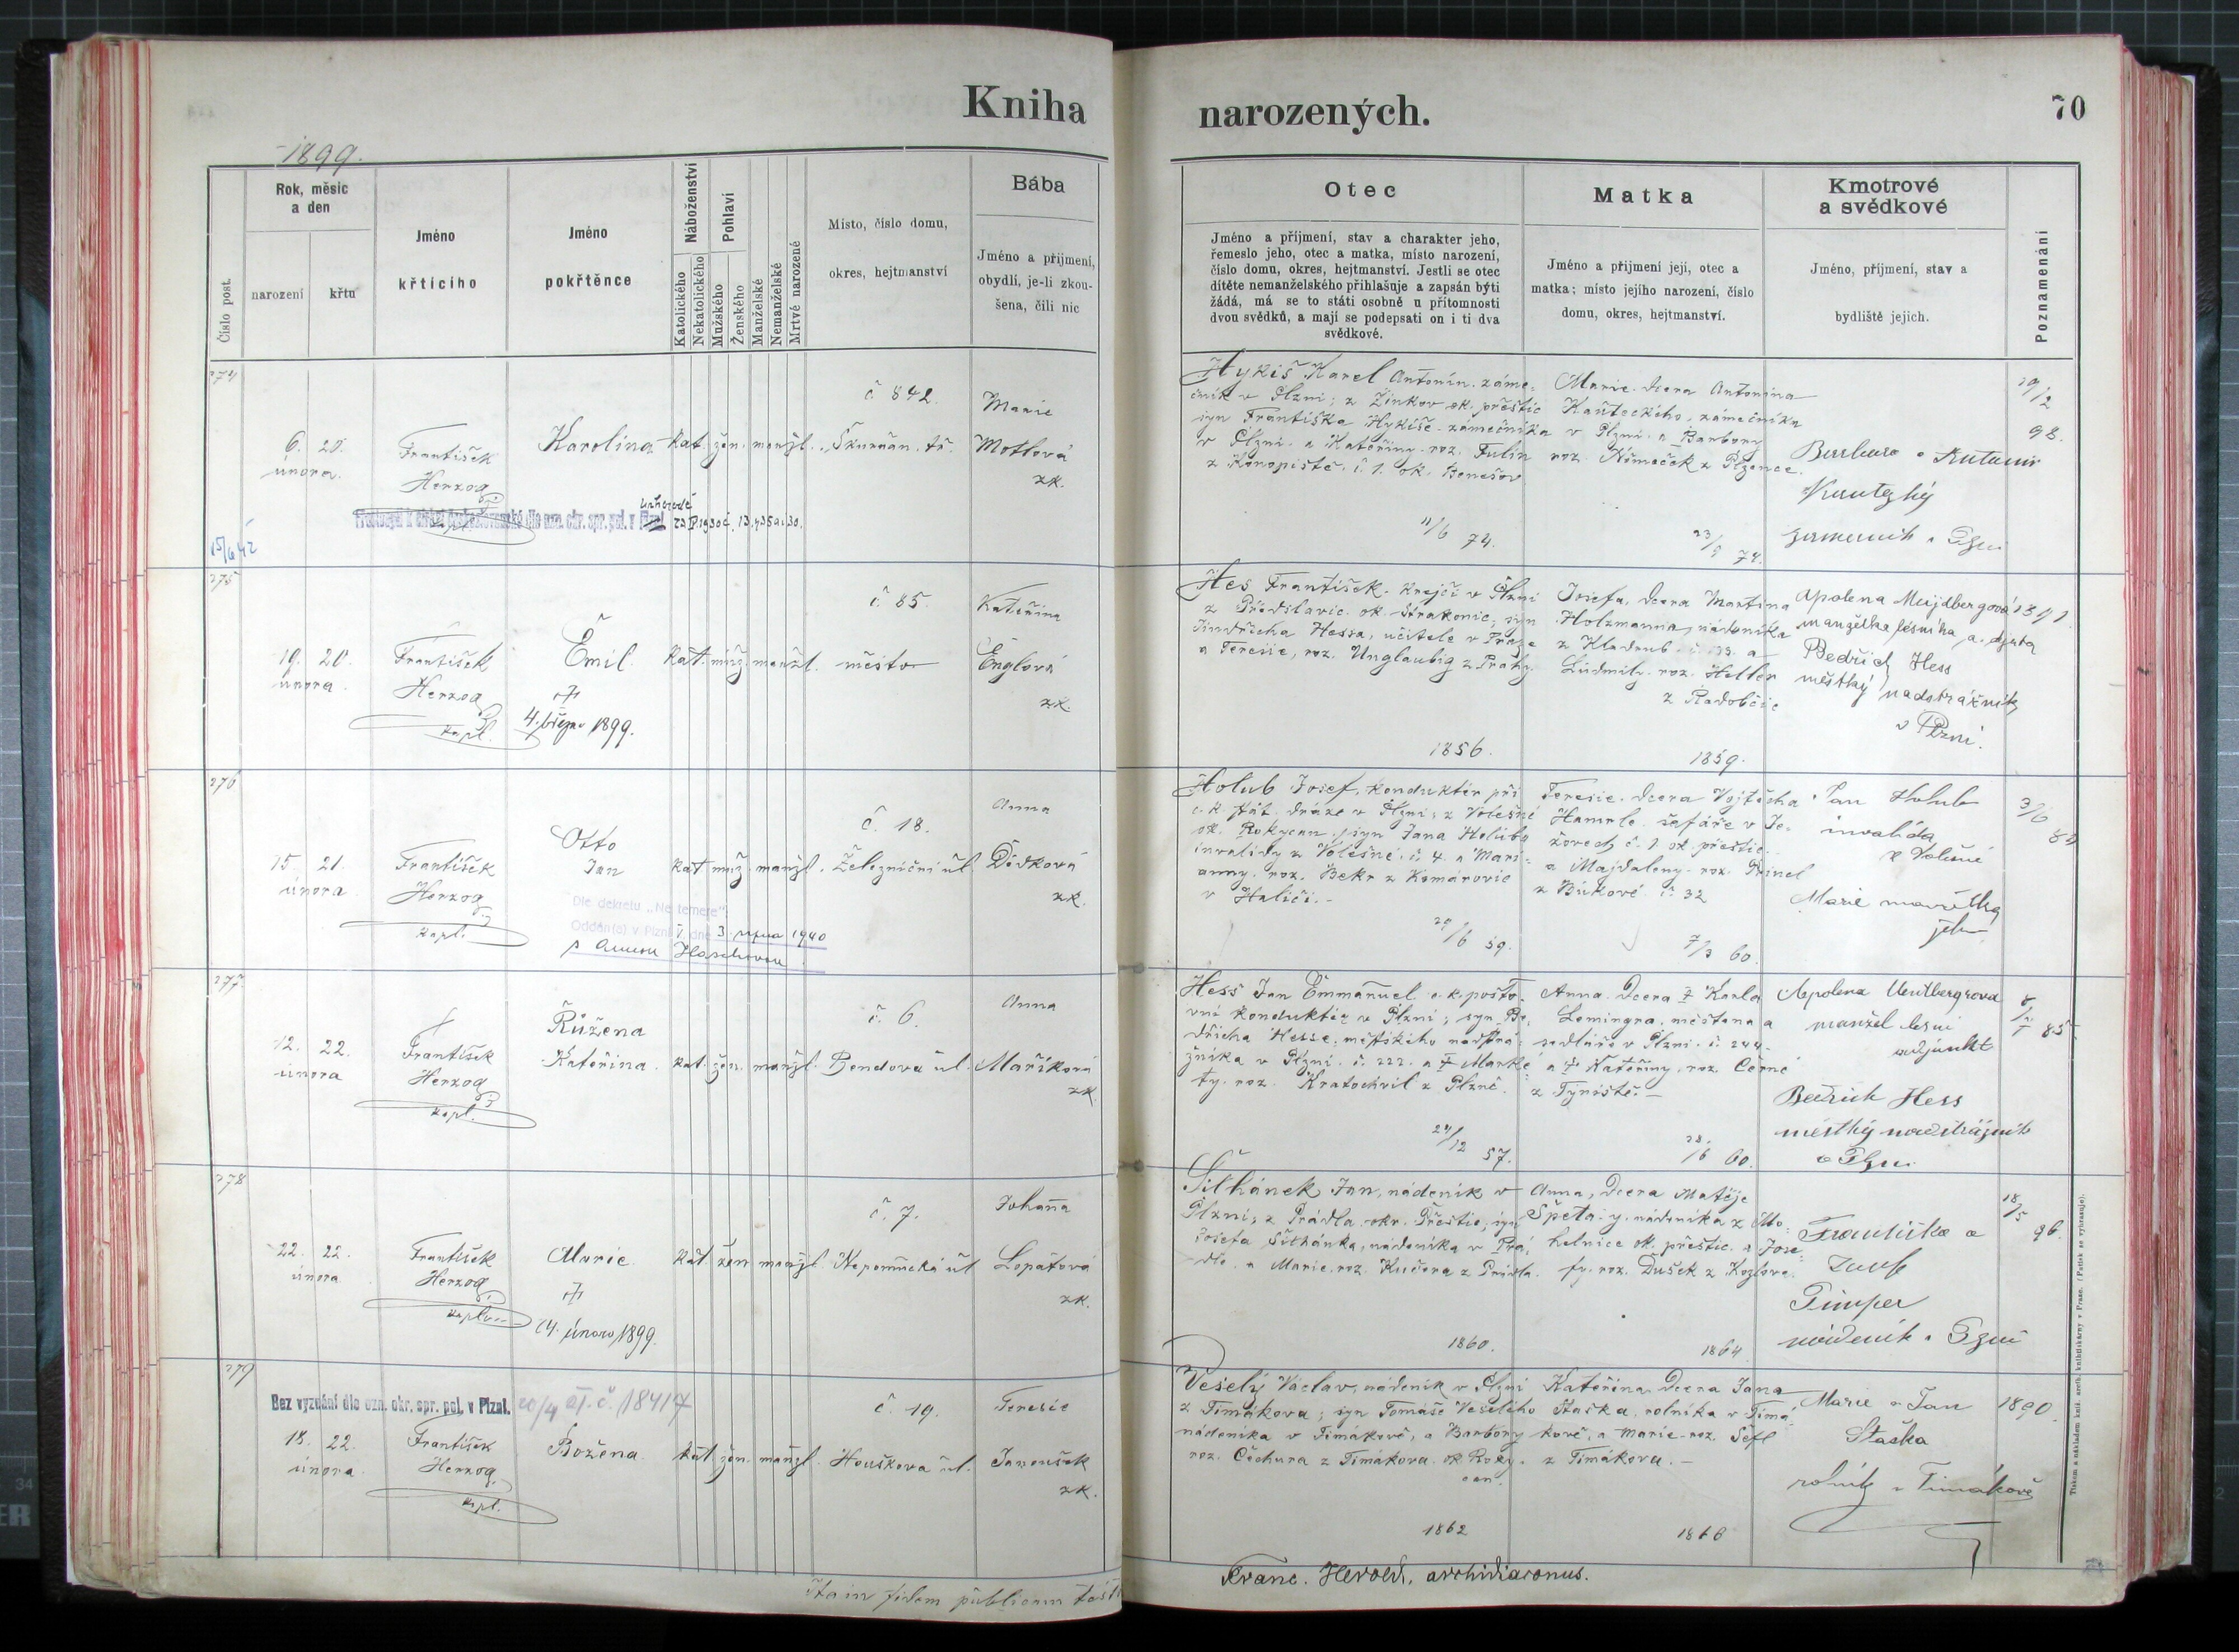 Kniha
narozených.
70
1899.
Číslo post.
Rok, měsíc
a den
narození
křtu
Jméno
křtícího
Jméno
pokřtěnce
Náboženství
Katolického
Nekatolického
Pohlaví
Mužského
Ženského
Manželské
Nemanželské
Mrtvě narozené
Místo, číslo domu,
okres, hejtmanství
Bába
Jméno a příjmení,
obydlí, je-li zkou-
šena, čili nic
Otec
Jméno a příjmení, stav a charakter jeho,
řemeslo jeho, otec a matka, místo narození,
číslo domu, okres, hejtmanství. Jestli se otec
dítěte nemanželského přihlašuje a zapsán býti
žádá, má se to státi osobně u přítomnosti
dvou svědků, a mají se podepsati on i ti dva
svědkové.
Matka
Jméno a příjmení její, otec a
matka; místo jejího narození, číslo
domu, okres, hejtmanství.
Kmotrové
a svědkové
Jméno, příjmení, stav a
bydliště jejich.
Poznamenání
274
6. 20.
února.
František
Herzog
Karolina
kat. žen. manžl.
č 842.
Škurňan. tř.
Marie
Motlová
zk.
15/6 42
Hykiš Karel Antonín. záme-
čník v Plzni; z Žinkov ok. přeštic
syn Františka Hykiše zámečníka
v Plzni a Kateřiny roz. Fulín
z Konopiště č. 1. ok. Benešov
11/6 74.
Marie. dcera Antonína
Kauteckého, zámečníka
v Plzni a Barbory
roz. Němeček z Plzence.
23/9 74.
Barbara a Antonín
Kautezký
v Plzni
19/2
98.
275
19. 20.
února.
František
Herzog
kapl.
Emil.
4. března 1899.
kat. muž. manžl.
č. 85.
město
Kateřina
Englová
zk.
Hes František. Krejčí v Plzni
z Předslavic. ok. Strakonic; syn
Jindřicha Hessa, učitele v Praze
a Terezie, roz. Unglaubig z Prahy.
1856.
Josefa, dcera Martina
Holzmanna, nádeníka
z Kladrub a
Ludmily. roz. Heller
z Radobčic
1859.
Apolena
manželka lesního adjunkta
Bedřich Hess
městký nadstrážník
v Plzni.
1891
276
15. 21.
února
František
Herzog
kapl.
Otto
Jan
kat muž. manžl.
Dle dekretu „Ne temere“
Oddán(s) v Plzni I. dne 3. srpna 1940
č. 18.
Železniční ul.
Anna
Dědková
zk.
Holub Josef, konduktér při
c. k. stát. dráze v Plzni; z Volešné
ok. Rokycan. syn Jana Holuba
invalidy z Volešné. č. 4. a Mari-
anny. roz. Bekr z Komárovic
v Haliči.
29/6 59.
Terezie. dcera Vojtěcha
Hamrle. šafáře v Je-
žovech č. 1. ok. přeštic.
a Majdaleny. roz. Trinel
z Bukové č. 32
7/3 60.
Jan Holub
invalida
z Volešné
Marie manželka
jeho
3/6
277
12. 22.
února
František
Herzog
kapl.
Růžena
Kateřina.
kat. žen. manžl.
č. 6.
Bendova ul.
Anna
Maříková
zk.
Hess Jan Emmanuel c. k. pošto-
vní konduktér v Plzni; syn Be-
dřicha Hesse, městského nadstrá-
žníka v Plzni. č. 222. a † Marké-
ty. roz. Kratochvil z Plzně.
24/12 57.
Anna. dcera † Karla
Lemingra. měšťana a
sedláře v Plzni. č. 244
a † Kateřiny. roz. Černé
z Týniště.
28/6 60.
Apolena
manžel lesní
adjunkt
Bedřich Hess
městký nadstrážník
v Plzni
85.
278
22. 22.
února
František
Herzog
Marie
24. února 1899.
kat. žen manžl.
č. 7.
Nepomucká ul
Johana
Lopatová
zk.
Šilhánek Jan, nádeník v
Plzni; z Prádla. okr. Přeštic, syn
Josefa Šilhánka, nádeníka v Prá-
dle. a Marie. roz. Kučera z Prádla.
1860.
Anna, dcera Matěje
Špety, nádeníka z Mo-
helnice ok. přeštic. a Jose-
fy. roz. Dušek z Kozlova.
1864.
Františka a
Josef
Pimper
nádeník v Plzni
18/5
96.
279
Bez vyznání dle ozn. okr. spr. pol. v Plzni. 20/4 č. 18417
18. 22.
února
František
Herzog
kapl.
Božena
kat. žen. manžl.
č. 19.
Houškova ul.
Terezie
Janoušek
zk.
Veselý Václav, nádeník v Plzni
z Timákova; syn Tomáše Veselého
nádeníka v Timákově, a Barbory
roz. Čechura z Timákova. ok. Roky-
can.
1862
Kateřina. dcera Jana
Staška. rolníka v Timá-
kově, a Marie. roz. Šefl
z Timákova.
1866
Marie a Jan
Staška
rolník v Timákově
1890.
Ita in fidem publicam
Franc. Herold, archidiaconus.